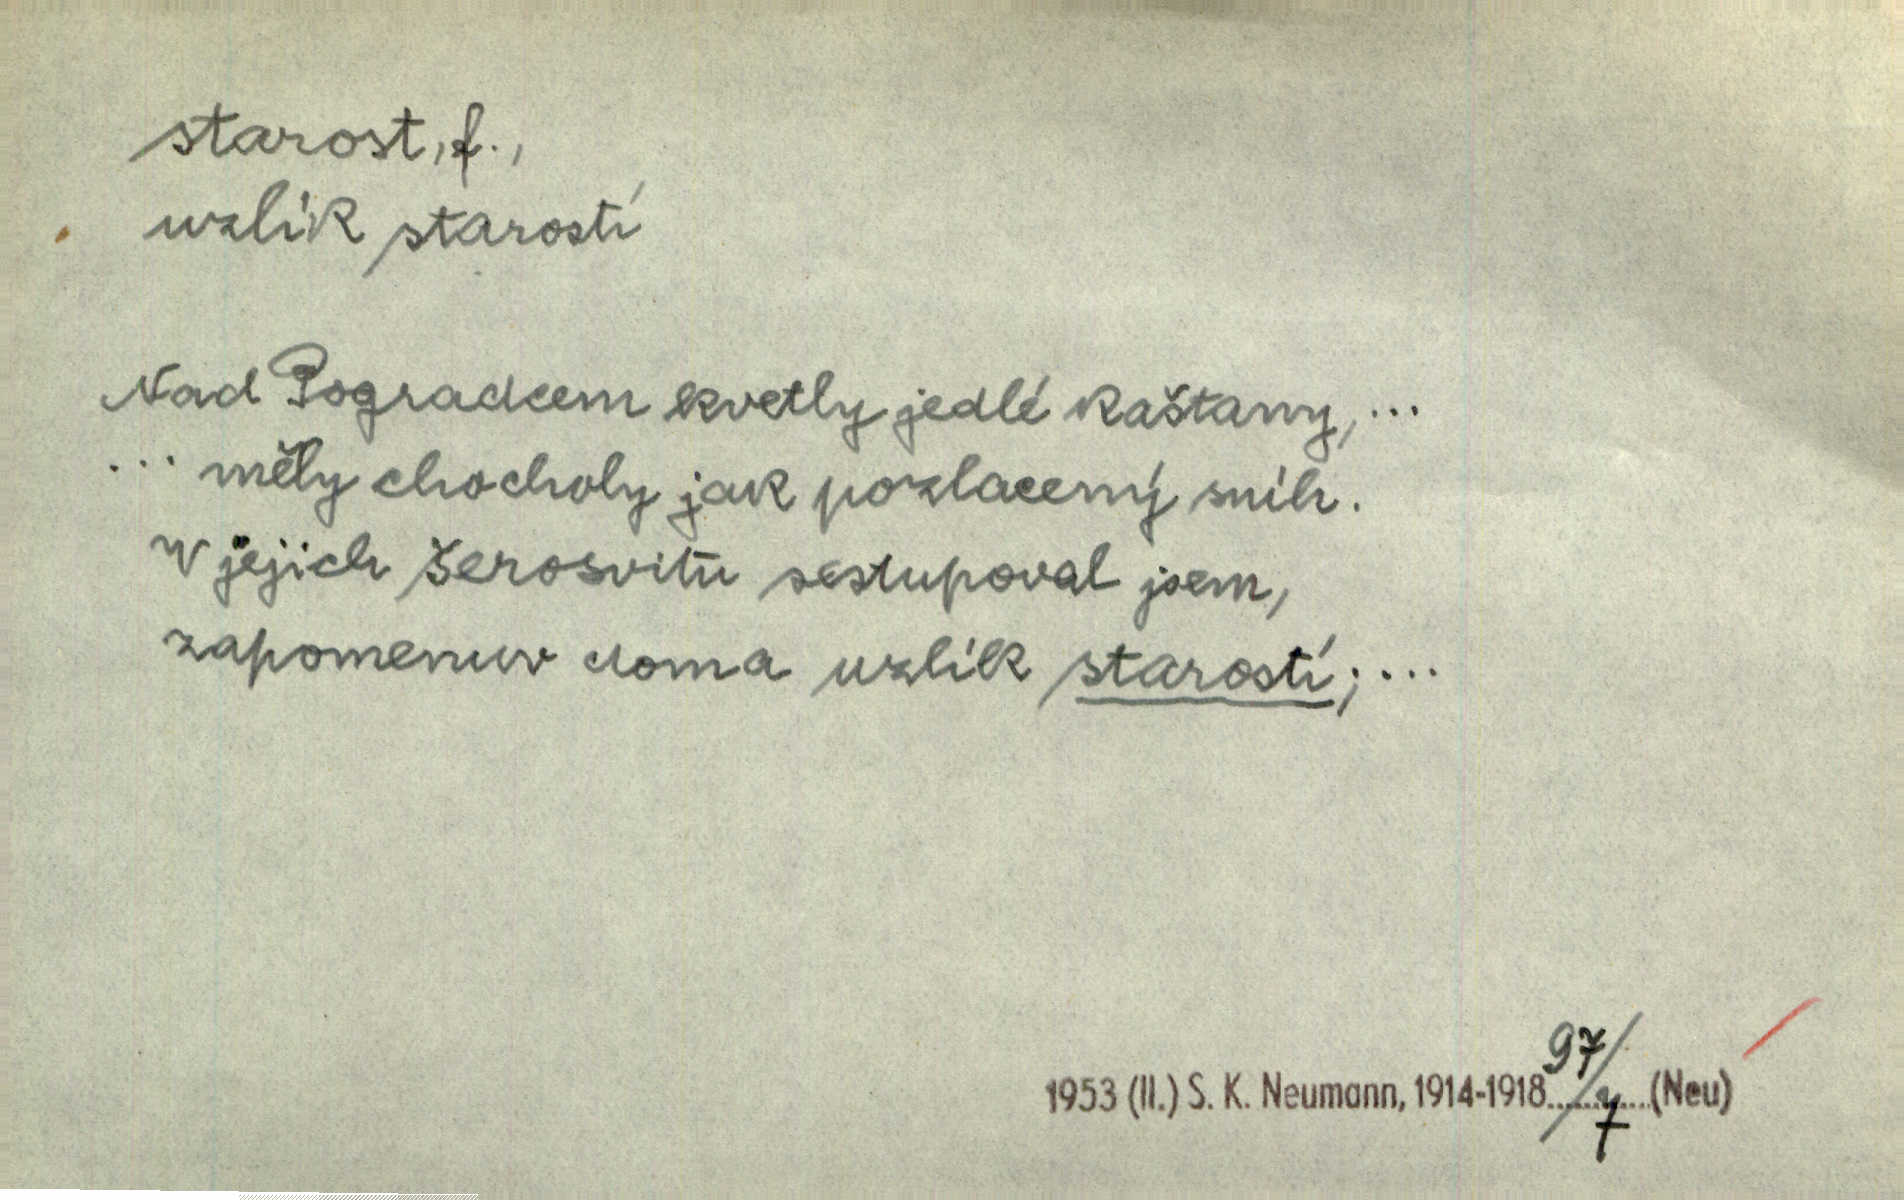 starost, f.,
uzlík starostí
Nad Pogradcem kvetly jedlé kaštany, ...
... měly chocholy jak pozlacený sníh.
V jejich šerosvitu sestupoval jsem,
zapomenuv doma uzlík starostí; ...
97/7
1953 (II.) S. K. Neumann, 1914-1918............(Neu)